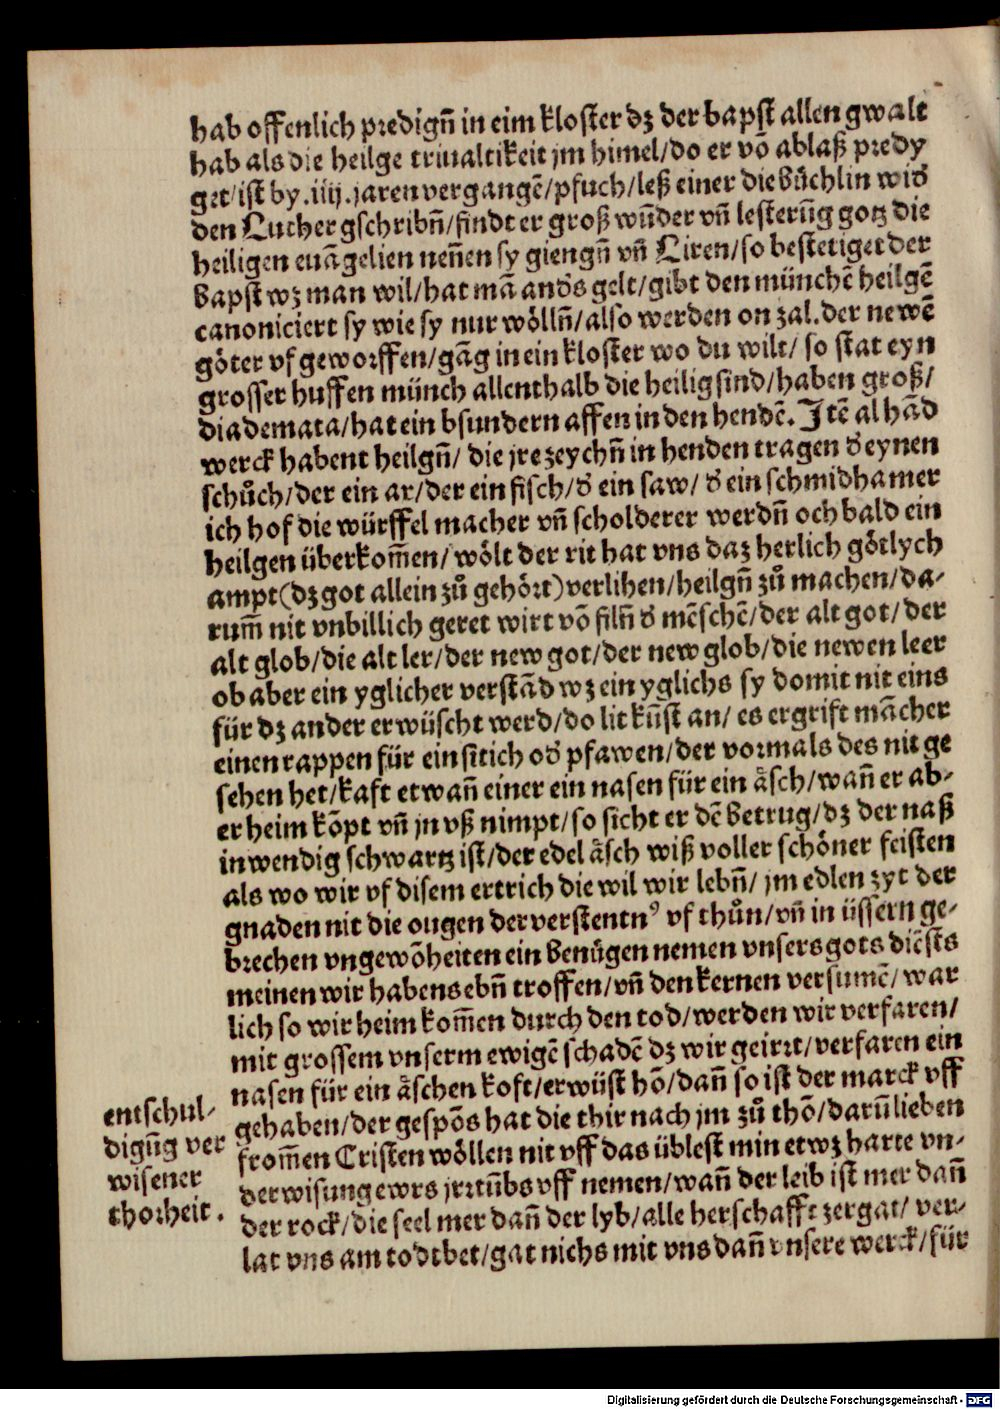 hab offenlich predigñ in eim kloster dz der bapst allen gwalt
hab als die heilge triualtikeit jm himel/do er võ ablaß predy
get/ist by .iiij. jaren vergangẽ/pfuch/leß einer die bůchlin wid̕
den Luther gschribñ/findt er groß wũder vñ lesterũg gotz die
heiligen euãgelien neñen sy giengñ vñ Liren/so bestetiget der
bapst wz man wil/hat mã and̕s gelt/gibt den münchẽ heilgẽ
canoniciert sy wie sy nur wöllñ/also werden on zal.der newẽ
göter vf geworffen/gãg in ein kloster wo du wilt/ so stat eyn
grosser huffen münch allenthalb die heilig sind/haben groß/
diademata/hat ein bsundern affen in den hendẽ. Itẽ al hãd
werck habent heilgñ/ die jre zeychñ in henden tragen d̕ eynen
schůch/der ein ar/der ein fisch/d̕ ein saw/ d̕ ein schmidhamer
ich hof die würffel macher vñ scholderer werdñ och bald ein
heilgen überkom̃en/ wölt der rit hat vns daz herlich götlych
ampt(dz got allein zů gehört)verlihen/heilgñ zů machen/da-
rum̃ nit vnbillich geret wirt võ filñ d̕ mẽschẽ/der alt got/der
alt glob/die alt ler/der new got/der new glob/die newen leer
ob aber ein yglicher verstãd wz ein yglichs sy domit nit eins
für dz ander erwüscht werd/do lit kũst an/ es ergrift mãcher
einen rappen für ein sitich od̕ pfawen/der vormals des nit ge
sehen het/kaft etwañ einer ein nasen für ein äsch/wañ er ab-
er heim kõpt vñ jn vß nimpt/so sicht er dẽ betrug/dz der naß
inwendig schwartz ist/der edel äsch wiß voller schöner feisten
als wo wir vf disem ertrich die wil wir lebñ/ jm edlen zyt der
gnaden nit die ougen der verstentnꝰ vf thůn/vñ in üssern ge-
brechen vngewõheiten ein benůgen nemen vnsers gots diẽsts
meinen wir habens ebñ troffen/vñ den kernen versumẽ/ war
lich so wir heim kom̃en durch den tod/werden wir verfaren/
mit grossem vnserm ewigẽ schadẽ dz wir geirrt/verfaren ein
nasen für ein äschen koft/erwüst hõ/dañ so ist der marck vff
gehaben/der gespõs hat die thir nach jm zů thõ/darũ lieben
from̃en Cristen wöllen nit vff das üblest min etwz harte vn-
derwisung ewrs jrrtũbs vff nemen/wañ der leib ist mer dañ
der rock/die seel mer dañ der lyb/alle herschafft zergat/ ver-
lat vns am todtbet/gat nichs mit vns dañ vnsere werck/für
entschul-
digũg ver
wisener
thorheit.
Digitalisierung gefördert durch die Deutsche Forschungsgemeinschaft - DFG